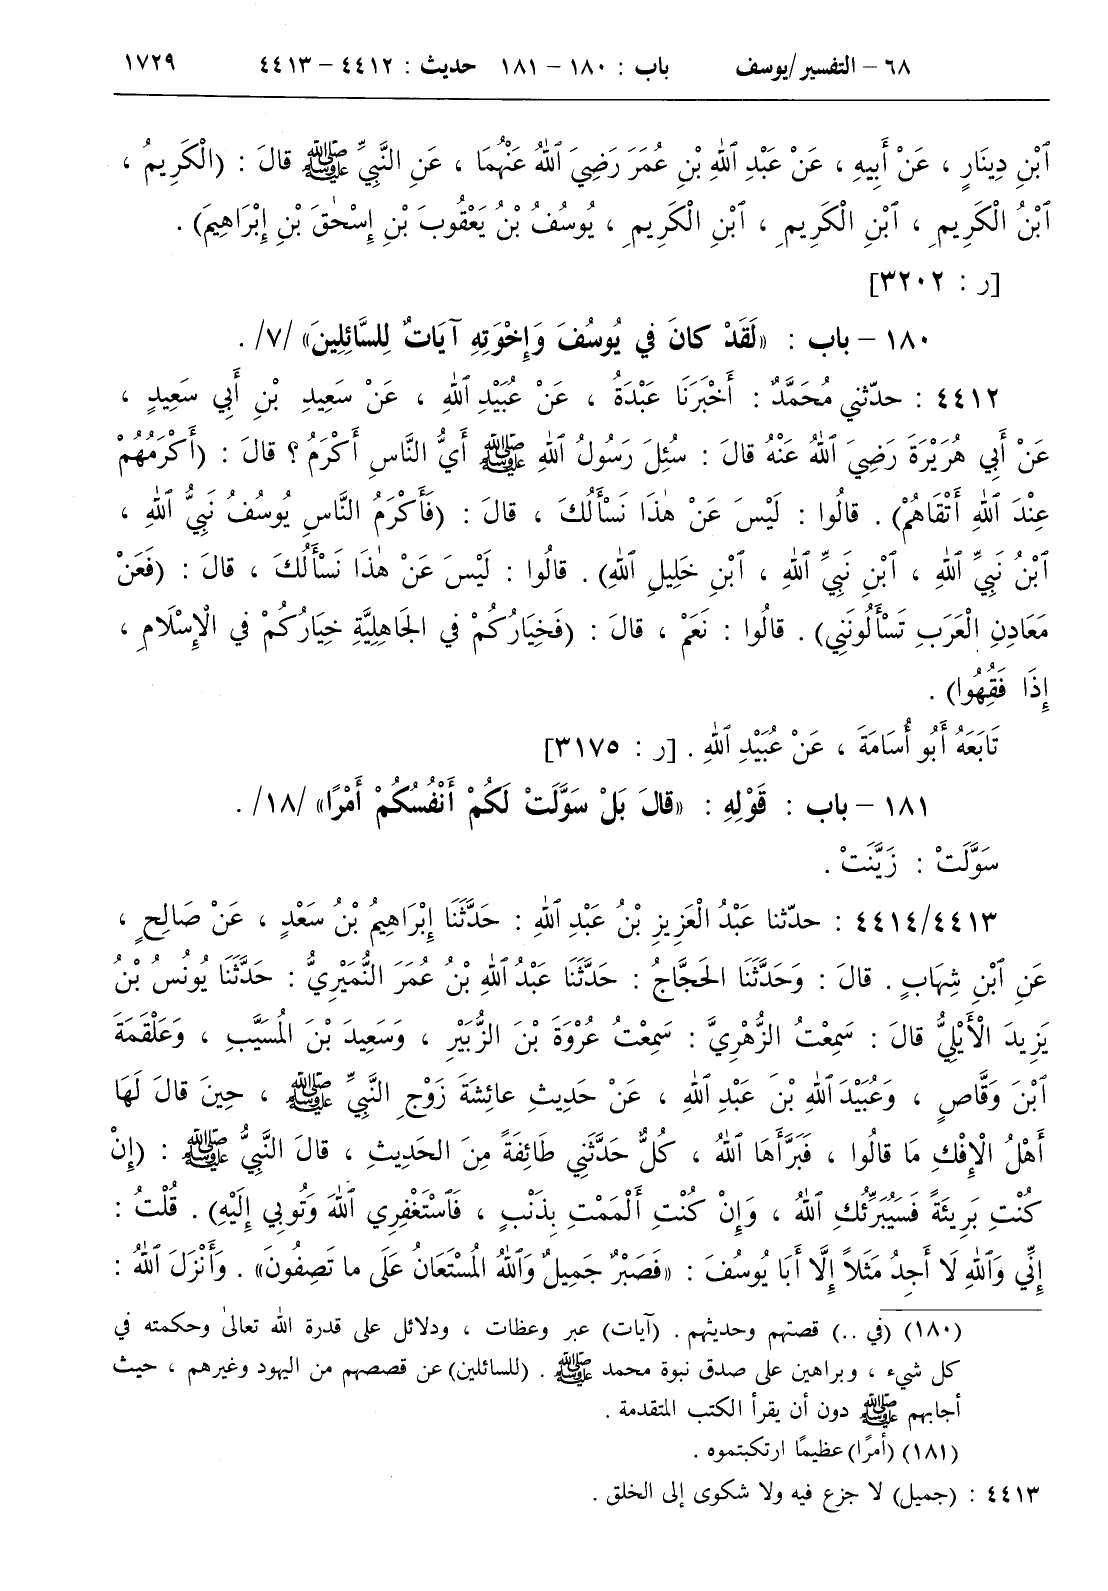 ٦٨ – التفسير/يوسف باب : ١٨٠ – ١٨١ حديث : ٤٤١٢ – ٤٤١٣ ١٧٢٩
ٱبْنِ دِينَارٍ ، عَنْ أَبِيهِ ، عَنْ عَبْدِ ٱللهِ بْنِ عُمَرَ رَضِيَ ٱللهُ عَنْهُمَا ، عَنِ النَّبِيِّ ﷺ قالَ : (الْكَرِيمُ ،
ٱبْنُ الْكَرِيمِ ، ٱبْنِ الْكَرِيمِ ، ٱبْنِ الْكَرِيمِ ، يُوسُفُ بْنُ يَعْقُوبَ بْنِ إِسْحٰقَ بْنِ إِبْرَاهِيمَ) .
[ر : ٣٢٠٢]
١٨٠ – باب : «لَقَدْ كانَ في يُوسُفَ وَإِخْوَتِهِ آيَاتٌ لِلسَّائِلِينَ» /٧/ .
٤٤١٢ : حدّثني مُحَمَّدٌ : أَخْبَرَنَا عَبْدَةُ ، عَنْ عُبَيْدِ ٱللهِ ، عَنْ سَعِيدِ بْنِ أَبِي سَعِيدٍ ،
عَنْ أَبِي هُرَيْرَةَ رَضِيَ ٱللهُ عَنْهُ قالَ : سُئِلَ رَسُولُ ٱللهِ ﷺ أَيُّ النَّاسِ أَكْرَمُ ؟ قالَ : (أَكْرَمُهُمْ
عِنْدَ ٱللهِ أَتْقَاهُمْ) . قالُوا : لَيْسَ عَنْ هٰذَا نَسْأَلُكَ ، قالَ : (فَأَكْرَمُ النَّاسِ يُوسُفُ نَبِيُّ ٱللهِ ،
ٱبْنُ نَبِيِّ ٱللهِ ، ٱبْنِ نَبِيِّ ٱللهِ ، ٱبْنِ خَلِيلِ ٱللهِ) . قالُوا : لَيْسَ عَنْ هٰذَا نَسْأَلُكَ ، قالَ : (فَعَنْ
مَعَادِنِ الْعَرَبِ تَسْأَلُونَنِي) . قالُوا : نَعَمْ ، قالَ : (فَخِيَارُكُمْ في الجَاهِلِيَّةِ خِيَارُكُمْ في الْإِسْلَامِ ،
إِذَا فَقِهُوا) .
تَابَعَهُ أَبُو أُسَامَةَ ، عَنْ عُبَيْدِ ٱللهِ . [ر : ٣١٧٥]
١٨١ – باب : قَوْلِهِ : «قالَ بَلْ سَوَّلَتْ لَكُمْ أَنْفُسُكُمْ أَمْرًا» /١٨/ .
سَوَّلَتْ : زَيَّنَتْ .
٤٤١٤/٤٤١٣ : حدّثنا عَبْدُ الْعَزِيزِ بْنُ عَبْدِ ٱللهِ : حَدَّثَنَا إِبْرَاهِيمُ بْنُ سَعْدٍ ، عَنْ صَالِحٍ ،
عَنِ ٱبْنِ شِهَابٍ . قالَ : وَحَدَّثَنَا الحَجَّاجُ : حَدَّثَنَا عَبْدُ ٱللهِ بْنُ عُمَرَ النُّمَيْرِيُّ : حَدَّثَنَا يُونُسُ بْنُ
يَزِيدَ الْأَيْلِيُّ قالَ : سَمِعْتُ الزُّهْرِيَّ : سَمِعْتُ عُرْوَةَ بْنَ الزُّبَيْرِ ، وَسَعِيدَ بْنَ المُسَيَّبِ ، وَعَلْقَمَةَ
ٱبْنَ وَقَّاصٍ ، وَعُبَيْدَ ٱللهِ بْنَ عَبْدِ ٱللهِ ، عَنْ حَدِيثِ عائِشَةَ زَوْجِ النَّبِيِّ ﷺ ، حِينَ قالَ لَهَا
أَهْلُ الْإِفْكِ مَا قالُوا ، فَبَرَّأَهَا ٱللهُ ، كُلٌّ حَدَّثَنِي طَائِفَةً مِنَ الحَدِيثِ ، قالَ النَّبِيُّ ﷺ : (إِنْ
كُنْتِ بَرِيئَةً فَسَيُبَرِّئُكِ ٱللهُ ، وَإِنْ كُنْتِ أَلْمَمْتِ بِذَنْبٍ ، فَٱسْتَغْفِرِي ٱللهَ وَتُوبِي إِلَيْهِ) . قُلْتُ :
إِنِّي وَٱللهِ لَا أَجِدُ مَثَلاً إِلَّا أَبَا يُوسُفَ : «فَصَبْرٌ جَمِيلٌ وَٱللهُ المُسْتَعَانُ عَلَى ما تَصِفُونَ» . وَأَنْزَلَ ٱللهُ :
(١٨٠) (في ..) قصتهم وحديثهم . (آيات) عبر وعظات ، ودلائل على قدرة الله تعالىٰ وحكمته في
كل شيء ، وبراهين على صدق نبوة محمد ﷺ . (للسائلين) عن قصصهم من اليهود وغيرهم ، حيث
أجابهم ﷺ دون أن يقرأ الكتب المتقدمة .
(١٨١) (أمرًا) عظيمًا ارتكبتموه .
٤٤١٣ : (جميل) لا جزع فيه ولا شكوى إلى الخلق .